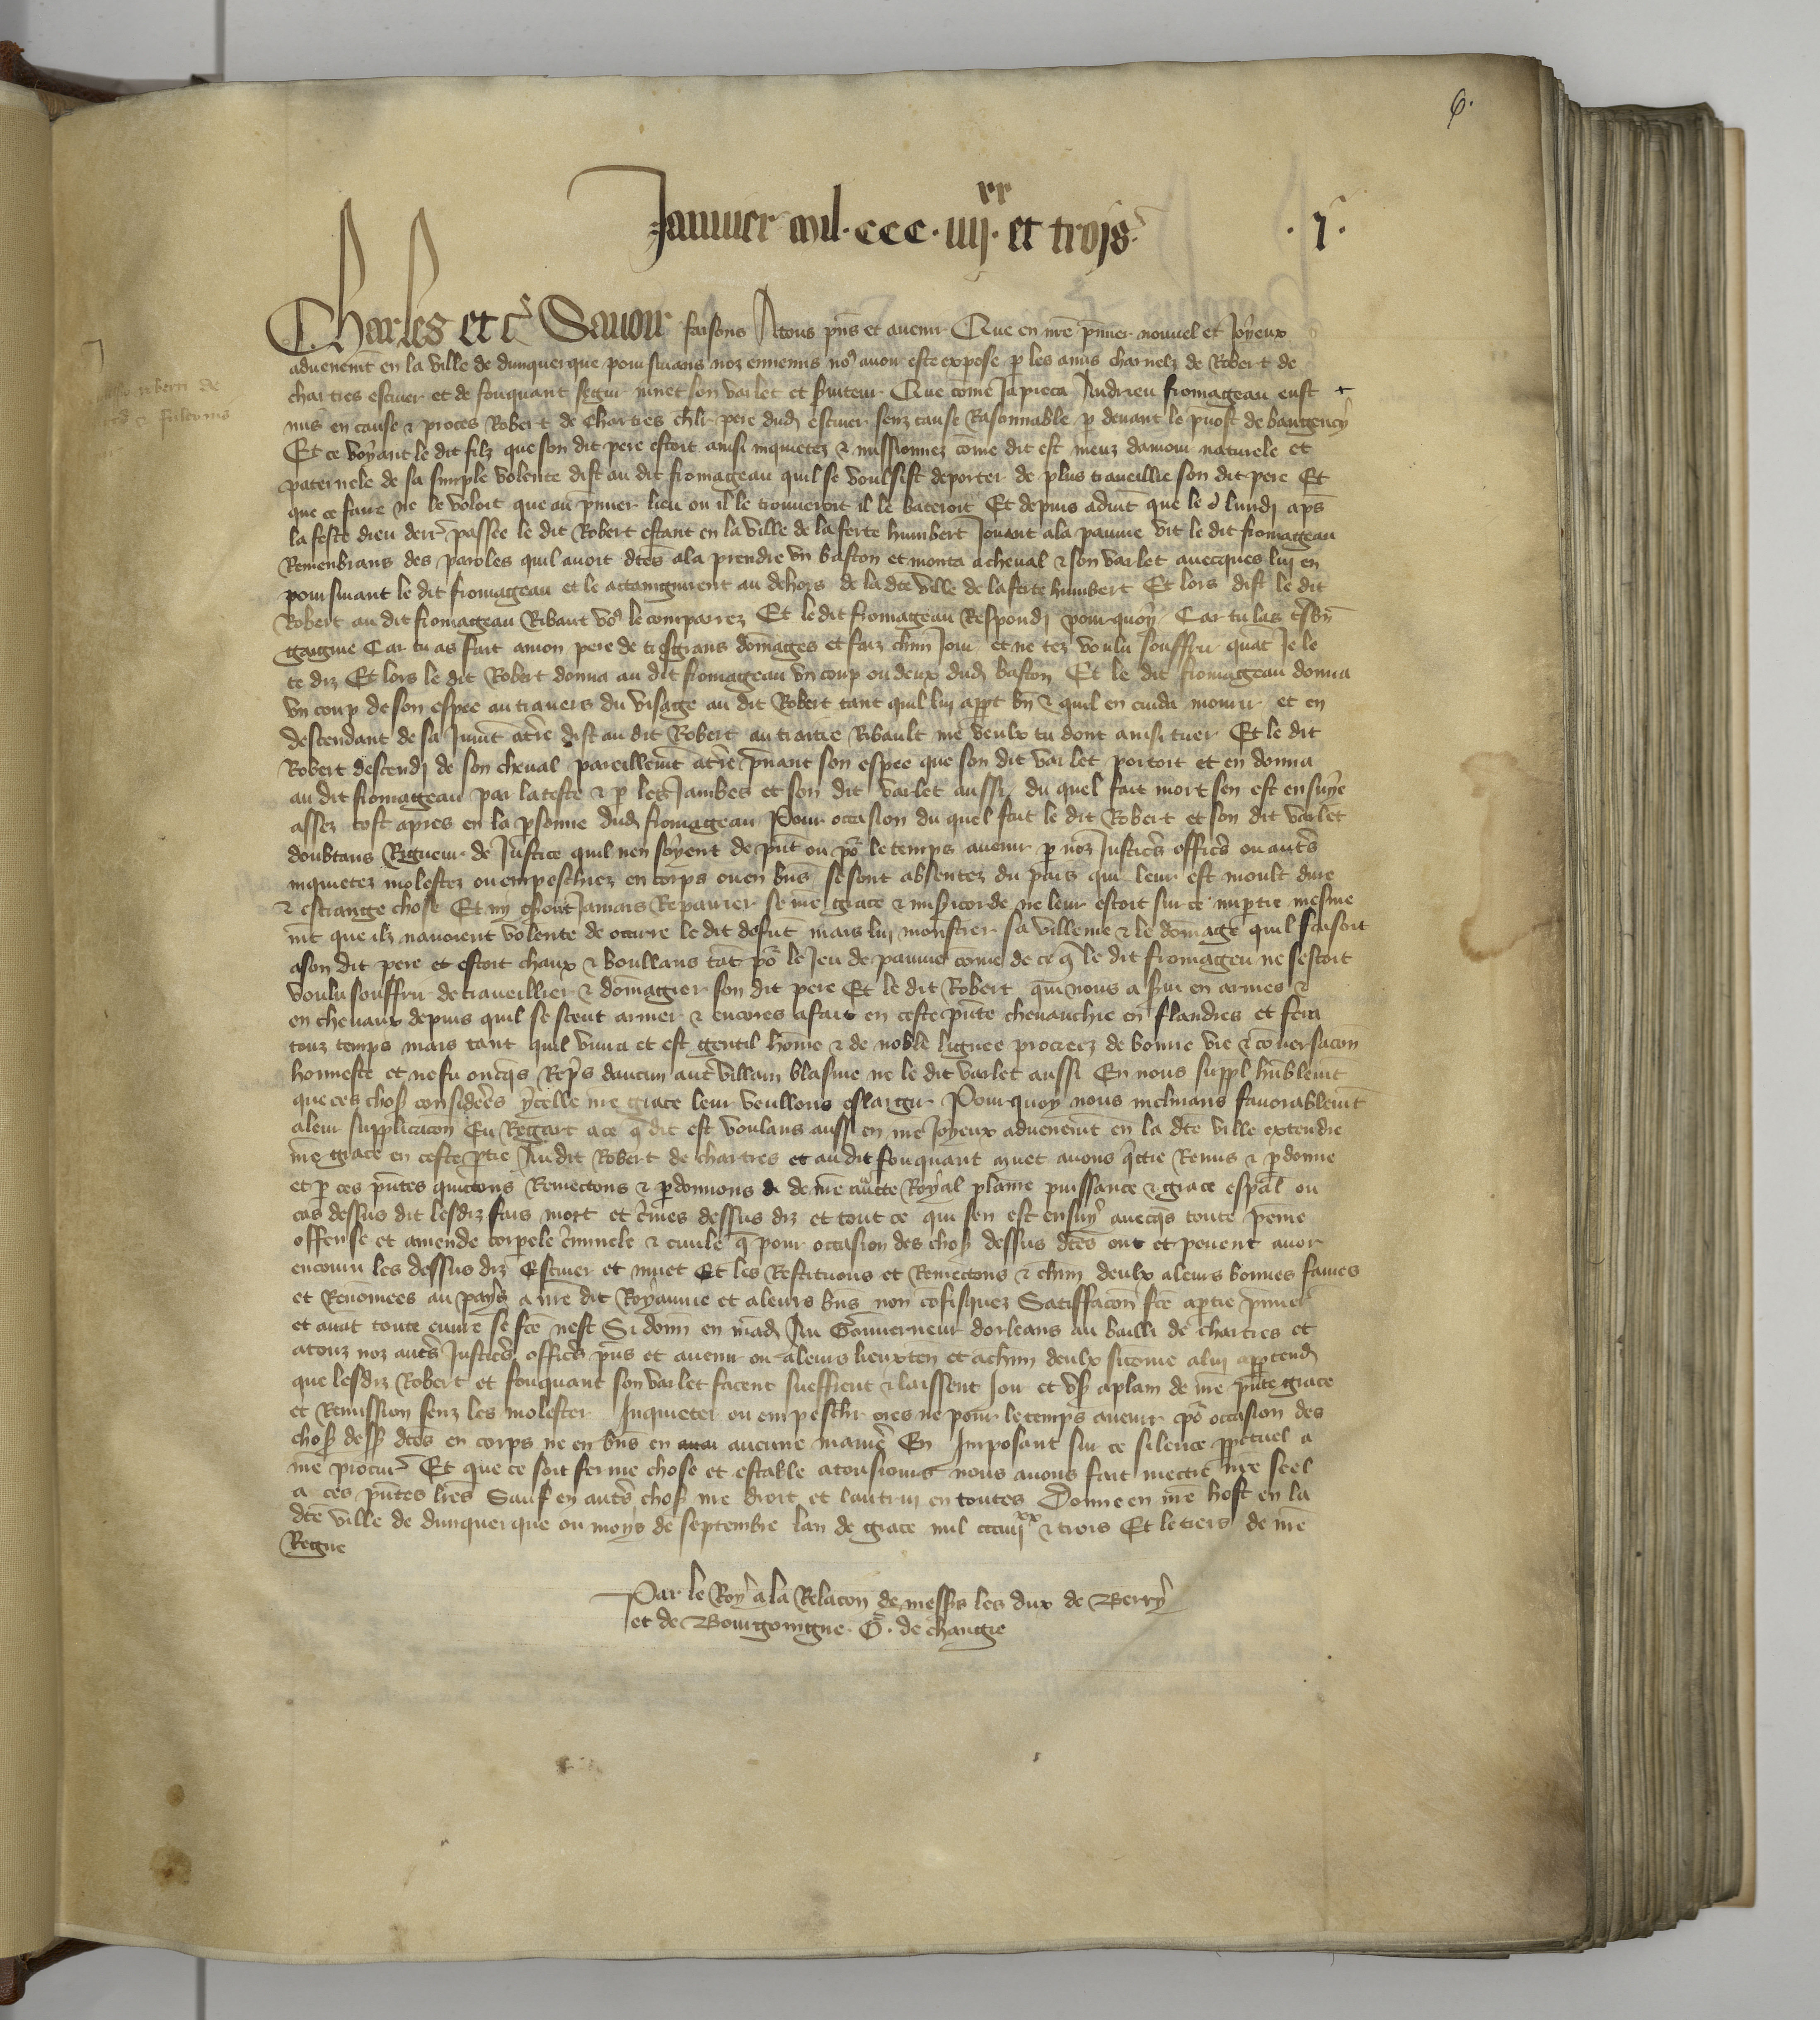 6.
Januier mil. ccc. iiij. xx et trois
.j.
Charles et c̃ Sauoir faisons A tous pñs et auenir Que en nr̃e p̃mier nouuel et Joyeux
aduenemt̃ en la ville de dunquerque poursuians noz ennemis no9 auoir este expose p les amis charnelz de Robert de
chartres escuier et de fouquant segur muet son varlet et suiteur Que come Ja pieca Andrieu fromageau eust
mis en cause & proces Robert de Chartres chlr̃ pere dud escuier senz cause Rasonnable p deuant le p̃uost de baugency
Et ce voyant le dit filz que son dit pere estoit ainsi inquietez & missionnez come dit est meuz damour naturele et
paternele de sa simple volente dist au dit fromageau quil se voulsist deporter de plus traueillie son dit pere Et
que ce faire ne le voloit que au p̃mier lieu ou il le trouueroit il le bateroit Et depuis aduint que le lundj ap̃s
la feste dieu derr̃ passee le dit Robert estant en la ville de la ferte humbert Jouant ala paume vit le dit fromageau
Remenbrans des paroles quil auoit dt̃es ala prendre vn baston et monta acheual & son varlet auecques luj en
poursuiant le dit fromageau et le attaingnirent au dehors de la dt̃e ville de la ferte humbert Et lors dist le dit
Robert au dit fromageau Ribaut vo9 le comparrez Et le dit fromageau Respondj pour quoy Car tu las tsbn̄
gaigne Car tu as fait amon pere de tresgrans dom̄ages et faiz chm̄ Jour et ne tez voulu souffrir quāt Je le
te diz Et lors le dit Robert donna au dit fromageau vn coup ou deux dud baston Et le dit fromageau donna
vn coup de son espee au trauers du visage au dit Robert tant quil luj appt bn̄ & quil en cuida mourir et en
descendant de sa Jumt̃ at̃re dist au dit Robert autraitre Ribault me veulx tu dont ainsi tuer Et le dit
Robert descendj de son cheual pareillemt̃ at̃re p̃nant son espee que son dit varlet portoit et en donna
au dit fromageau par la teste & p les Jambes et son dit varlet aussi du quel fait mort sen est ensuye
assez tost apres en la psonne dud fromageau Pour occasion du quel fait le dit Robert et son dit varlet
doubtans Rigueur de Justice quil nen soyent de p̃nt ou po᷑ le temps auenir p noz Justic̃s offic̃s ou aut̃s
inquietez molestez ou empeschiez en corps ou en bn̄s se sont absentez du pais qui leur est moult dure
& estrange chose Et ny osent Jamais Repairier se nr̃e grace & misicorde ne leur estoit sur ce impartie mesme
mt̃ que ilz nauoient volente de occirre le dit defũt mais luj monstrer sa villenie & le dom̄age quil faisoit
ason dit pere et estoit chaux & boullans tāt po᷑ le Jeu de paume come de ce q̃ le dit fromageu ne sestoit
voulu souffrir de traueillier & dom̄agier son dit pere Et le dit Robert qui nous a sui en armes &
en cheuaux depuis quil se sceut armer & encores a fait en ceste p̃nte cheuauchie en flandres et fera
touz temps mais tant quil viura et est gentil hōme & de noble lignee procreez de bonne vie & cōuersacōn
honneste et ne fu oncq̃s Rep̃s daucun aut̃ villain blasme ne le dit varlet aussi En nous suppl hūblemt̃
que ces chos considerees ycelle nr̃e grace leur veullons eslargir Pour quoy nous inclinans fauorablemt̃
a leur supplicacōn Eu Regart a ce q̃ dit est voulans aussi en nr̃e Joyeux aduenemt̃ en la dt̃e ville extendre
nr̃e grace en ceste ptie Au dit Robert de chartres et au dit fouquant muet auons q̃ctie Remis & pdonne
et p ces p̃ntes quictons Remectons & pdonnons de nr̃e auctte Royal plaine puissance & grace esp̃al ou
cas dessus dit lesdiz fais mort et c̃mes dessus diz et tout ce qui sen est ensuy auecq̃s toute peine
offense et amende corpele c̃minele & ciuile q̃ pour occasion des chos dessus dt̃es ont et peuent auoir
encouru les dessus diz Escuier et muet Et les Restituons et Remectons & chm̄ deulx aleurs bonnes fames
et Renōmees au pays a nr̃e dit Royaume et aleurs bn̄s non cōfisquez Satiffacōn fcē aptie p̃miere
et auāt toute euure se fcē nest Si donn̄ en mād Au Gouuerneur dorleans au bailli de chartres et
atouz noz aut̃s Justic̃s offic̃s p̃ns et auenir ou aleurs lieuxten̄ et achm̄ deulx si come alui apptend
que lesdiz Robert et fouquant son varlet facent sueffrent & laissent Joir et vs aplain de nr̃e p̃nte grace
et Remission senz les molester Inquieter ou empeschr ores ne pour le temps auenir po᷑ occasion des
chos dess dt̃es en corps ne en bn̄s en aucune manie᷑ En Imposant sur ce silence ppetuel a
nr̃e procur᷑ Et que ce soit ferme chose et estable atousiours nous auons fait mectre nr̃e seel
a ces p̃ntes lr̃es Sauf en aut̃s chos nr̃e droit et lautruj en toutes Donne en nr̃e host en la
dt̃e ville de dunquerque ou moys de septembre lan de grace mil ccciiij xx & trois Et le tiers de nr̃e
Regne
Par le Roy a la Relacōn de mess̃s les dux de Berry
et de Bourgoingne. G. de changie